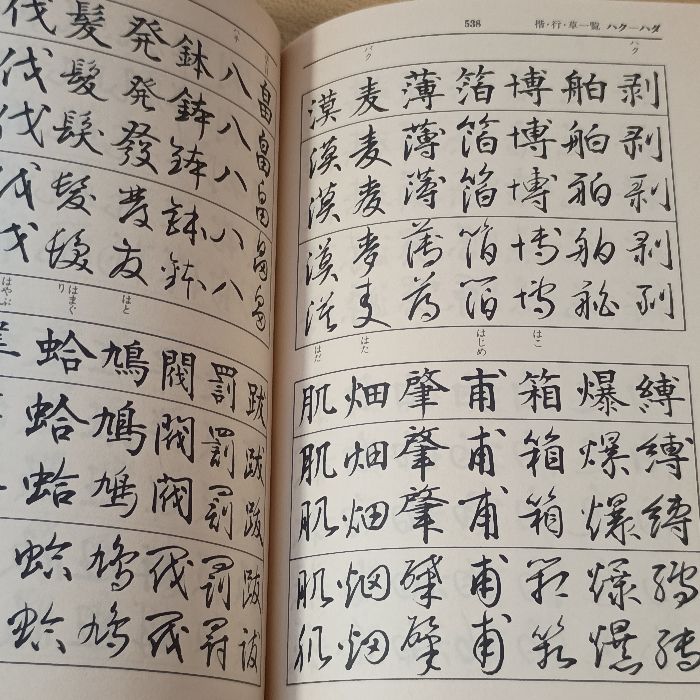 538
楷・行・草一覧 ハク―ハダ
ハク
剥剥剥剥剥
舶舶舶舶舶
博博博博博
箔箔箔箔箔
薄薄薄薄薄
バク
麦麦麦麥麦
漠漠漠漠漠
縛縛縛縛縛
爆爆爆爆爆
はこ
箱箱箱箱箱
はじめ
甫甫甫甫甫
肇肇肇肇肇
はた
畑畑畑畑畑
はだ
肌肌肌肌肌
畠畠畠畠畠
八八八八八
鉢鉢鉢鉢鉢
発発發發発
髪髪髪髪髪
伐伐伐伐伐
跋跋跋跋跋
罰罰罰罰罰
閥閥閥閥閥
はと
鳩鳩鳩鳩鳩
はまぐり
蛤蛤蛤蛤蛤
はやぶ